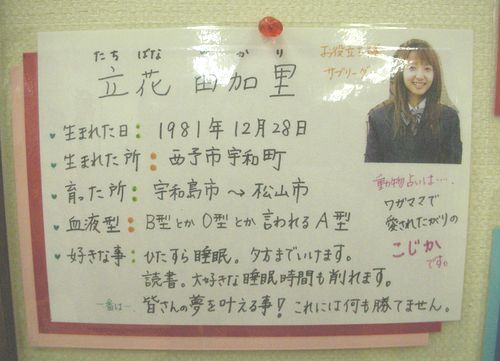 たちばな ゆかり
立花 由加里
お役立ち度
サブリーダー
生まれた日: 1981年12月28日
生まれた所: 西予市宇和町
育った所: 宇和島市〜松山市
血液型: B型とかO型とか言われるA型
好きな事: ひたすら睡眠。夕方までいけます。
読書。大好きな睡眠時間も削れます。
一番は… 皆さんの夢を叶える事! これには何も勝てません。
動物占いは….
ワガママで
愛されたがりの
こじか
です。